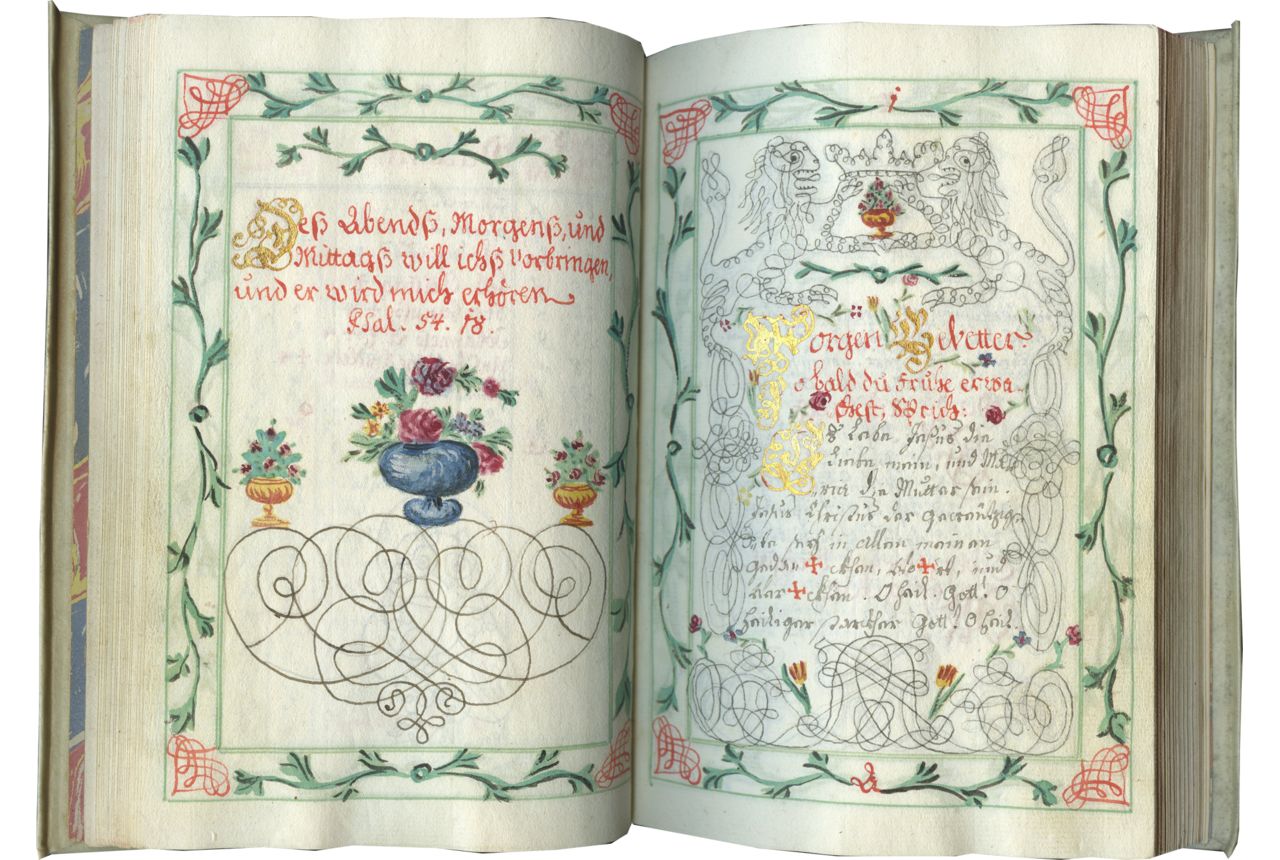 Deß Abendß, Morgenß, und
Mittagß will ichß vorbringen,
und er wird mich erhören
Psal. 54. 18.
i
Morgen Gebetter
So bald du fruhe erwa-
chest, Sprich:
Es Lebe Jesus die
Liebe mein, und Ma-
ria die Mutter sein.
Jesus Christus der Gecreützig-
te seÿ in allen meinen
Gedan✠cken, Wo✠rt, und
Wer✠cken. O heil. Gott. O
heiliger starcker Gott. O heil.
A